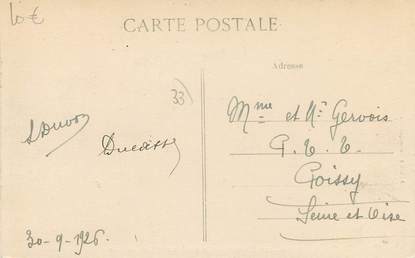 10 €
CARTE POSTALE
Adresse
33)
Mme et Mr Gervois
P. T. T.
Poissy
Seine et Oise
30-9-1926